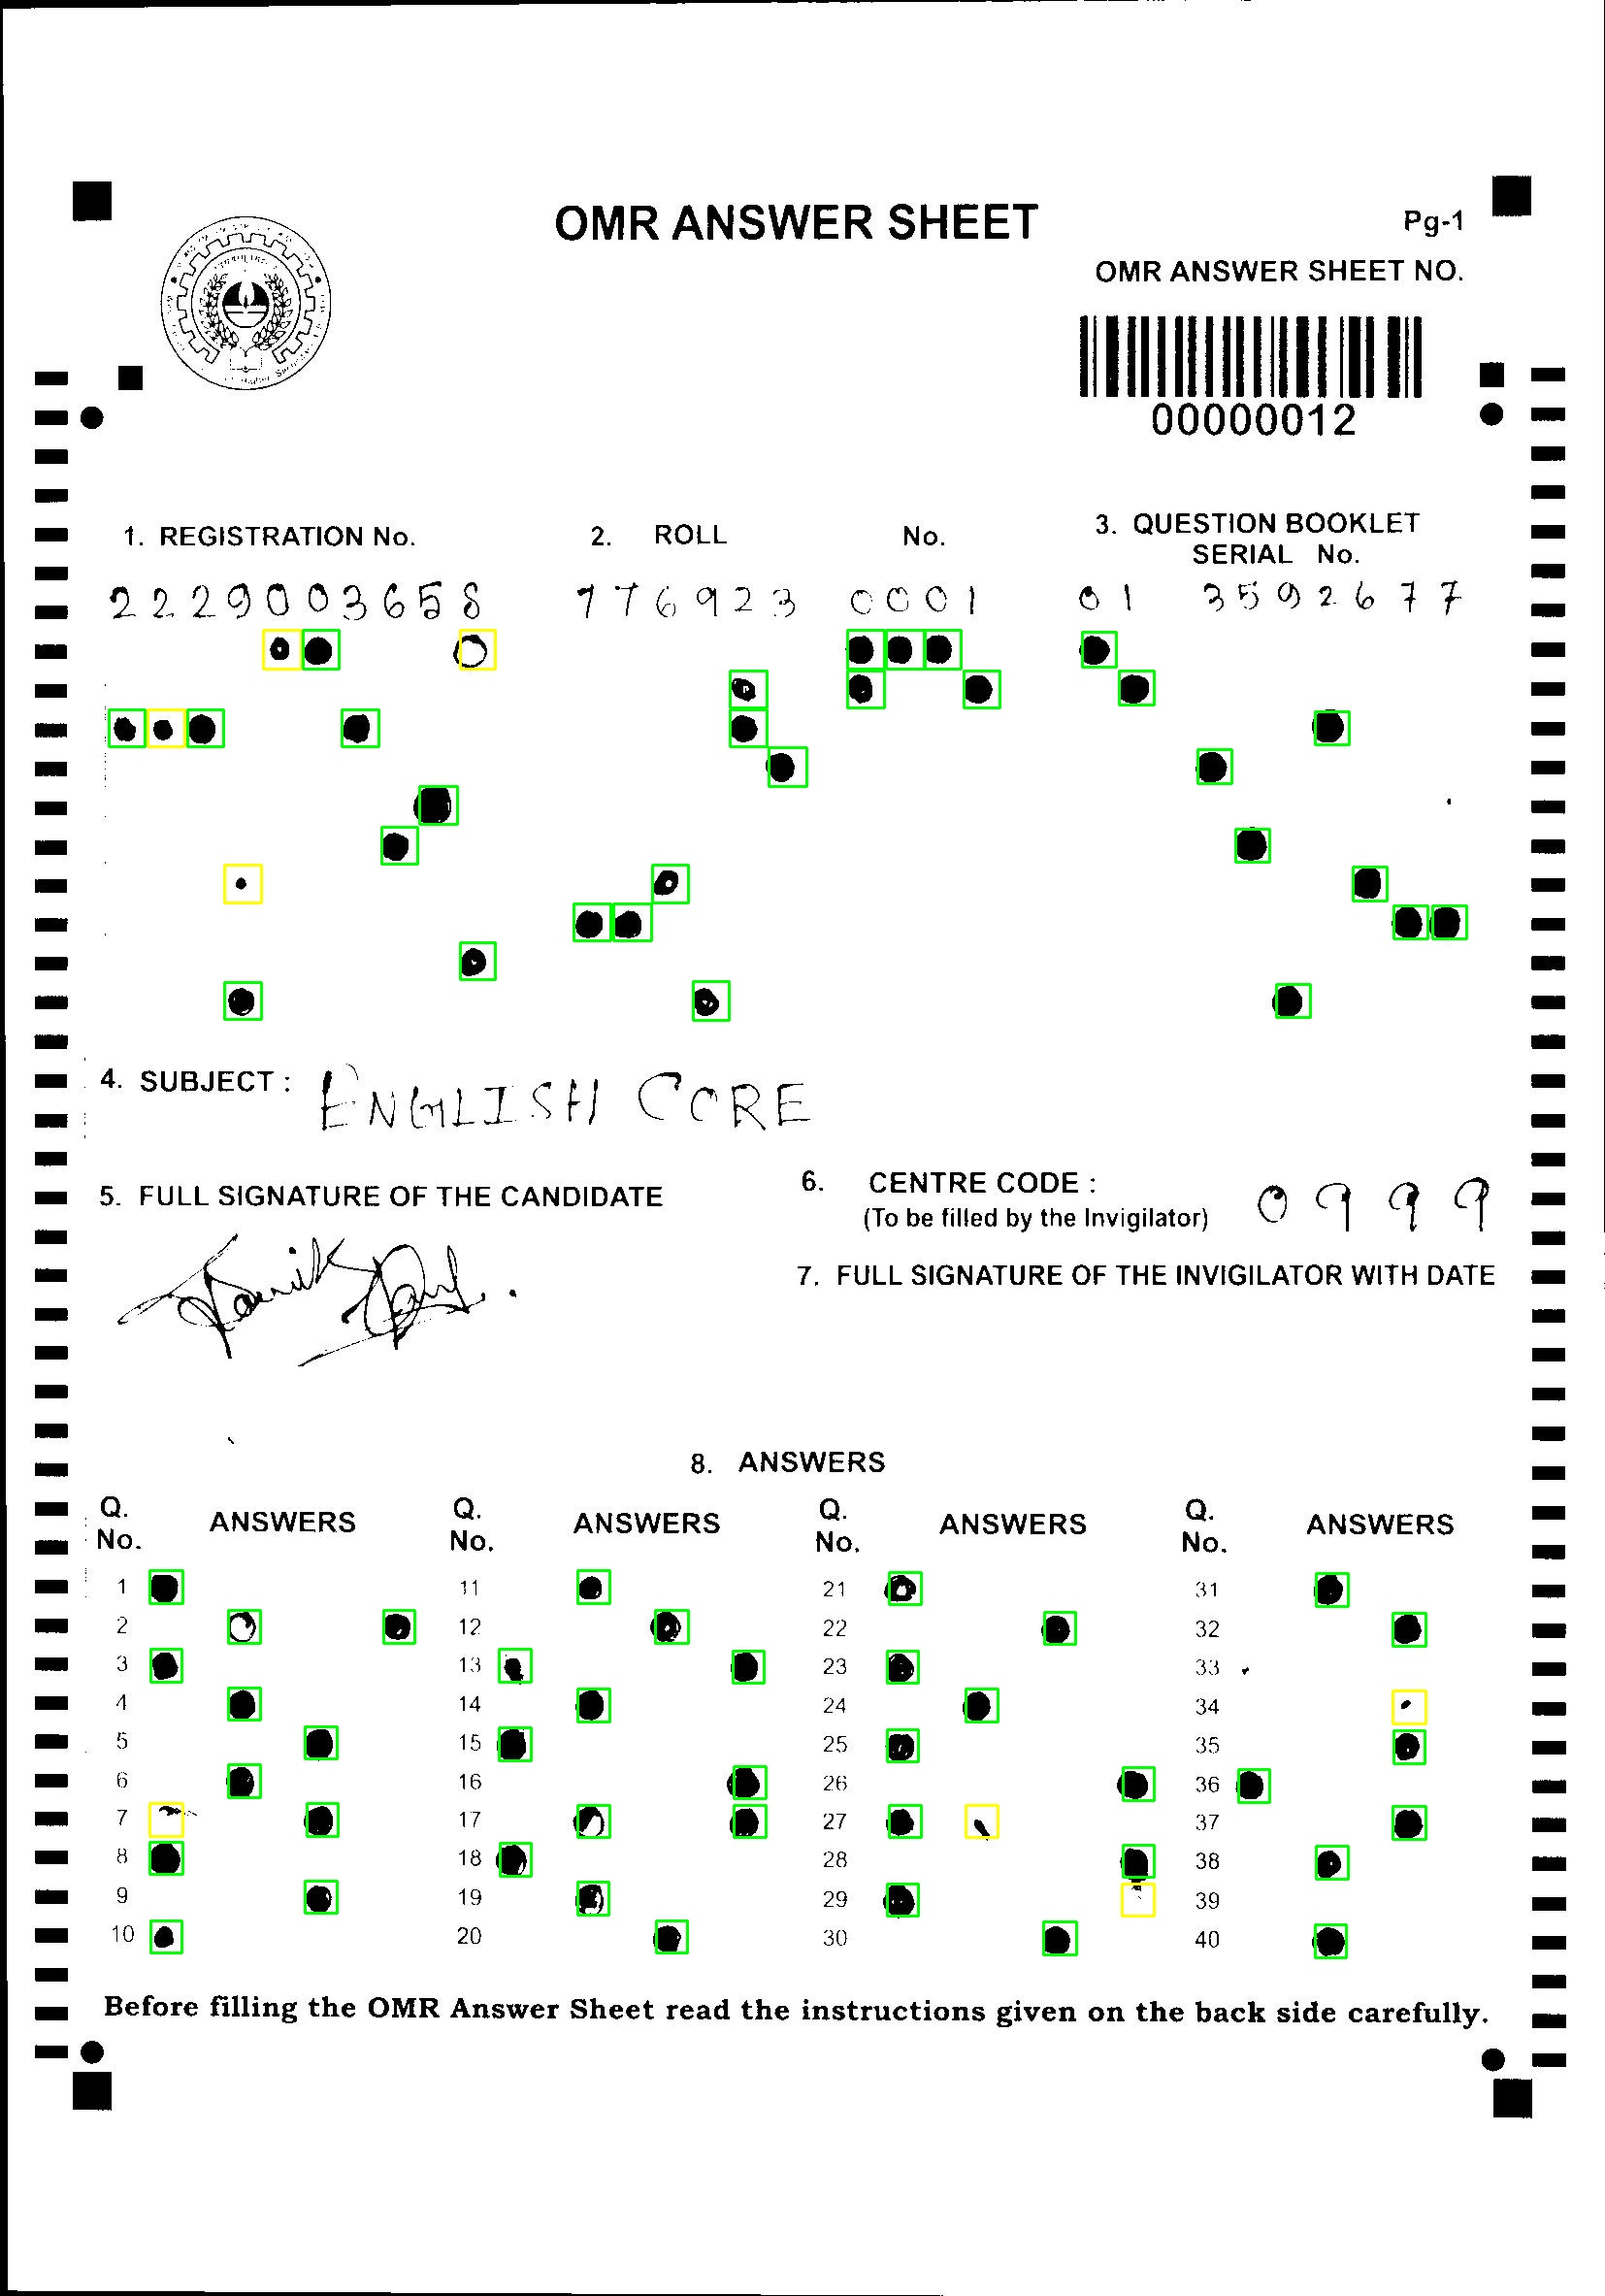 OMR ANSWER SHEET
Pg-1
OMR ANSWER SHEET NO.
00000012
1. REGISTRATION No.
2. ROLL No.
3. QUESTION BOOKLET
SERIAL No.
2229003658
776923 0001
01 3592677
4. SUBJECT : ENGLISH CORE
5. FULL SIGNATURE OF THE CANDIDATE
6. CENTRE CODE :
(To be filled by the Invigilator)
0999
7. FULL SIGNATURE OF THE INVIGILATOR WITH DATE
8. ANSWERS
Q. No. ANSWERS Q. No. ANSWERS Q. No. ANSWERS Q. No. ANSWERS
1 11 21 31
2 12 22 32
3 13 23 33
4 14 24 34
5 15 25 35
6 16 26 36
7 17 27 37
8 18 28 38
9 19 29 39
10 20 30 40
Before filling the OMR Answer Sheet read the instructions given on the back side carefully.